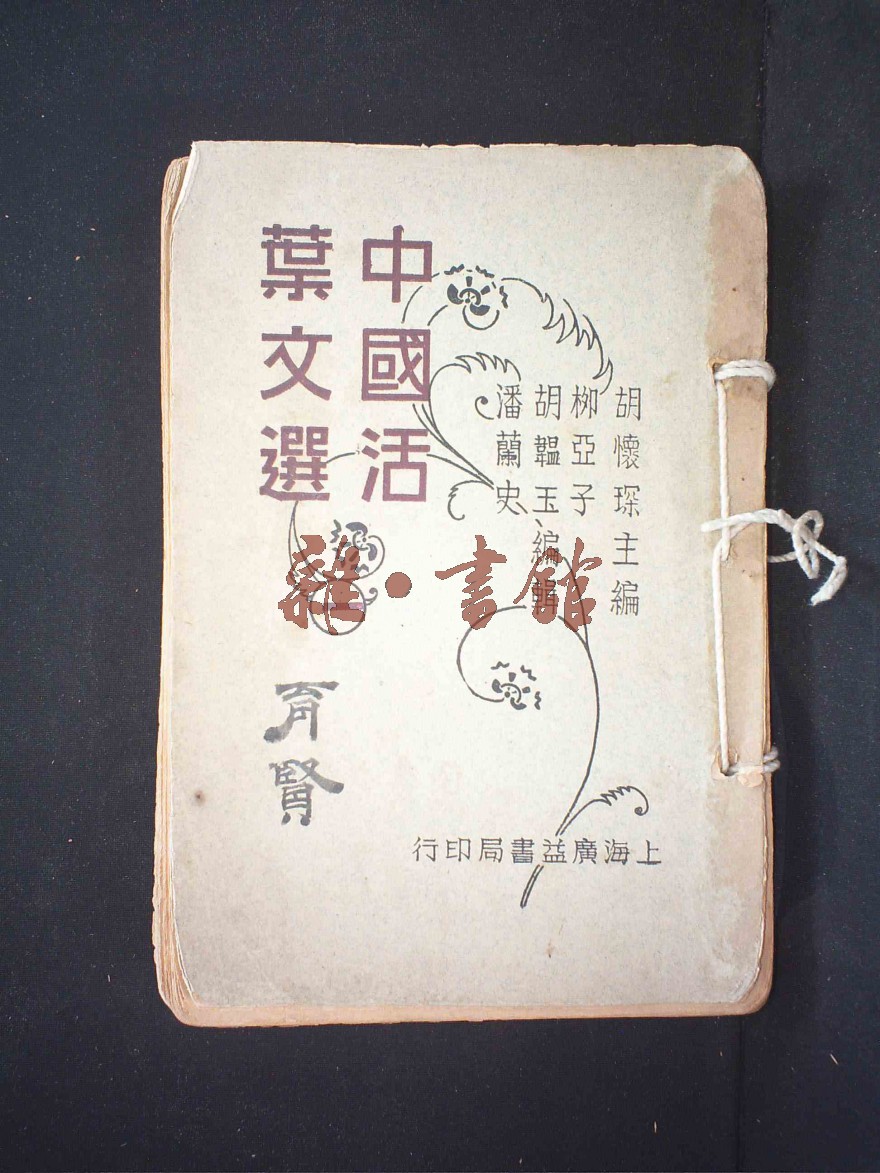 胡懷琛主編
柳亞子
胡韞玉編輯
潘蘭史
中國活
葉文選
育賢
上海廣益書局印行
雜·書館